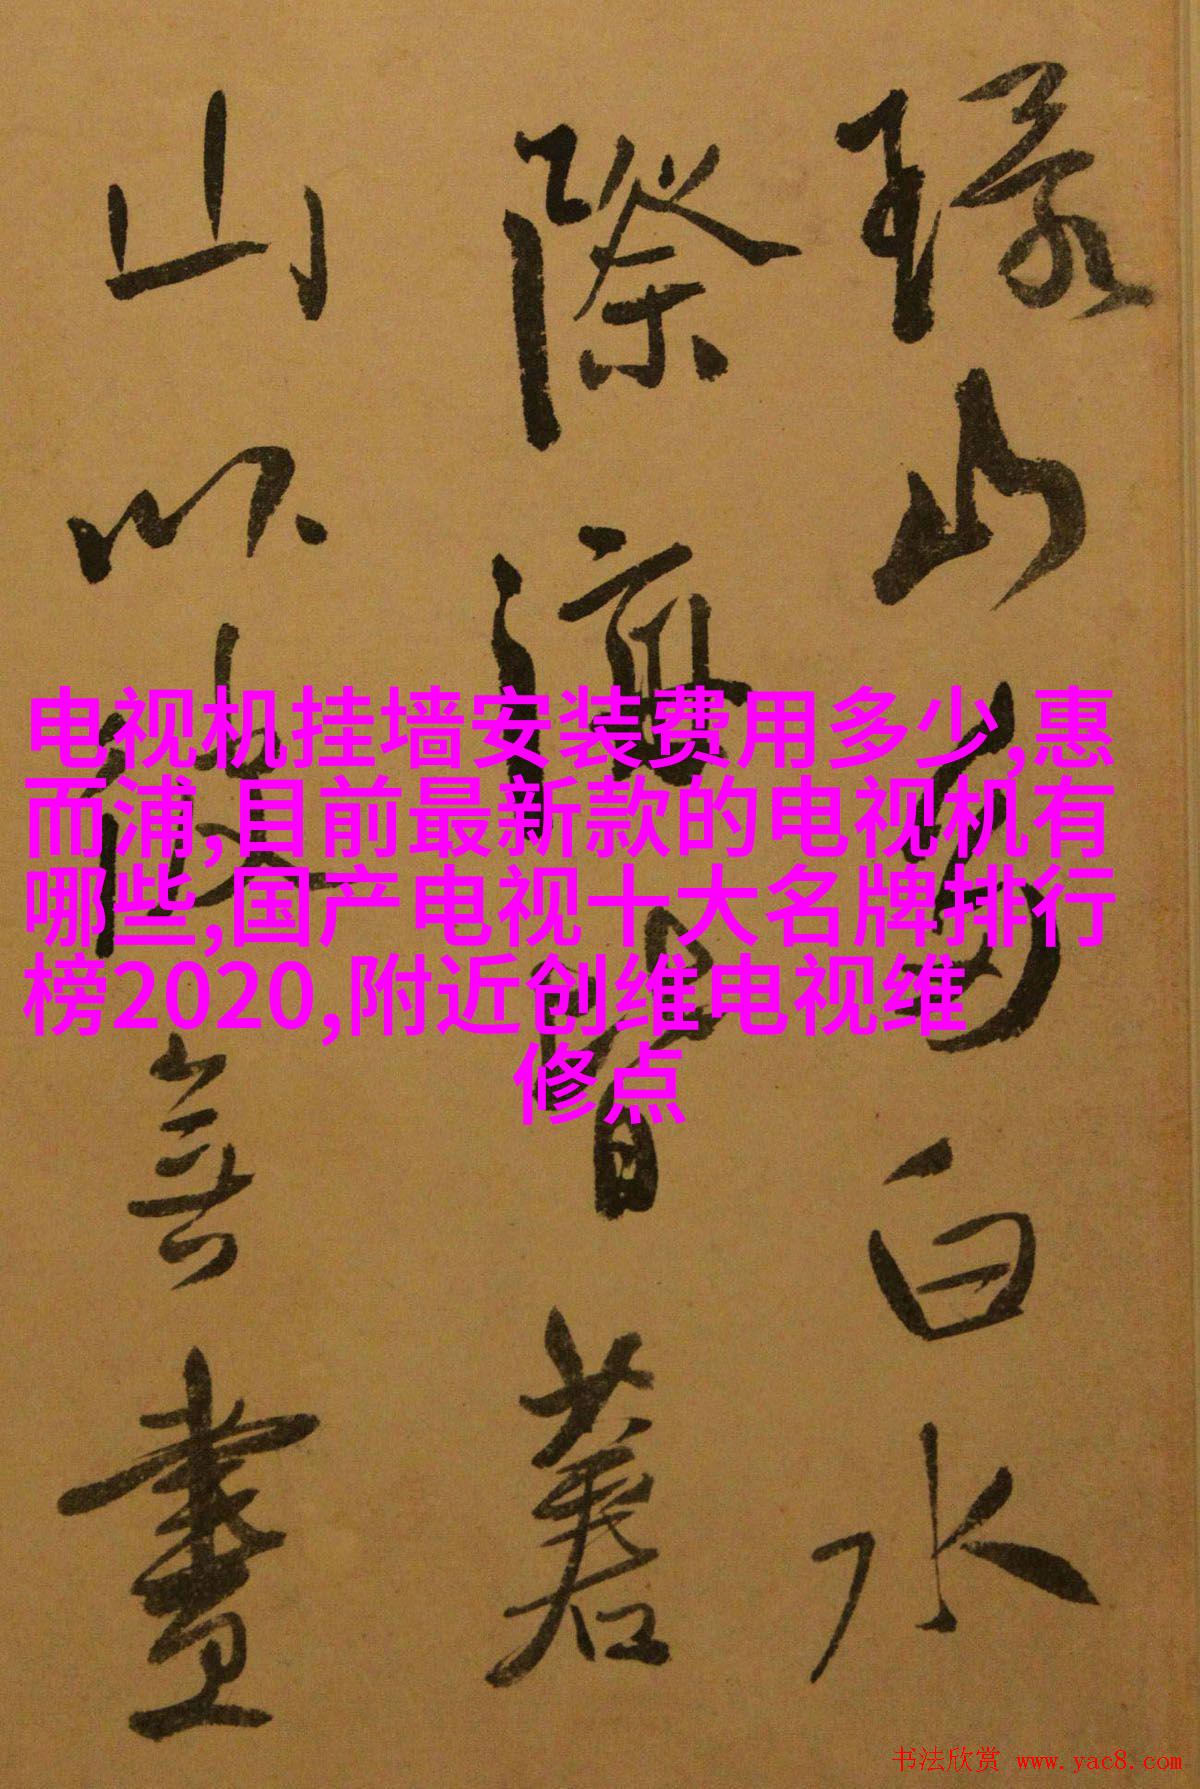 电视机挂墙安装费用多少,惠
而浦,目前最新款的电视机有
哪些,国产电视十大名牌排行
榜2020,附近创维电视维
修点
山白水
際海皆著
山以無畫
书法欣赏 www.yac8.com